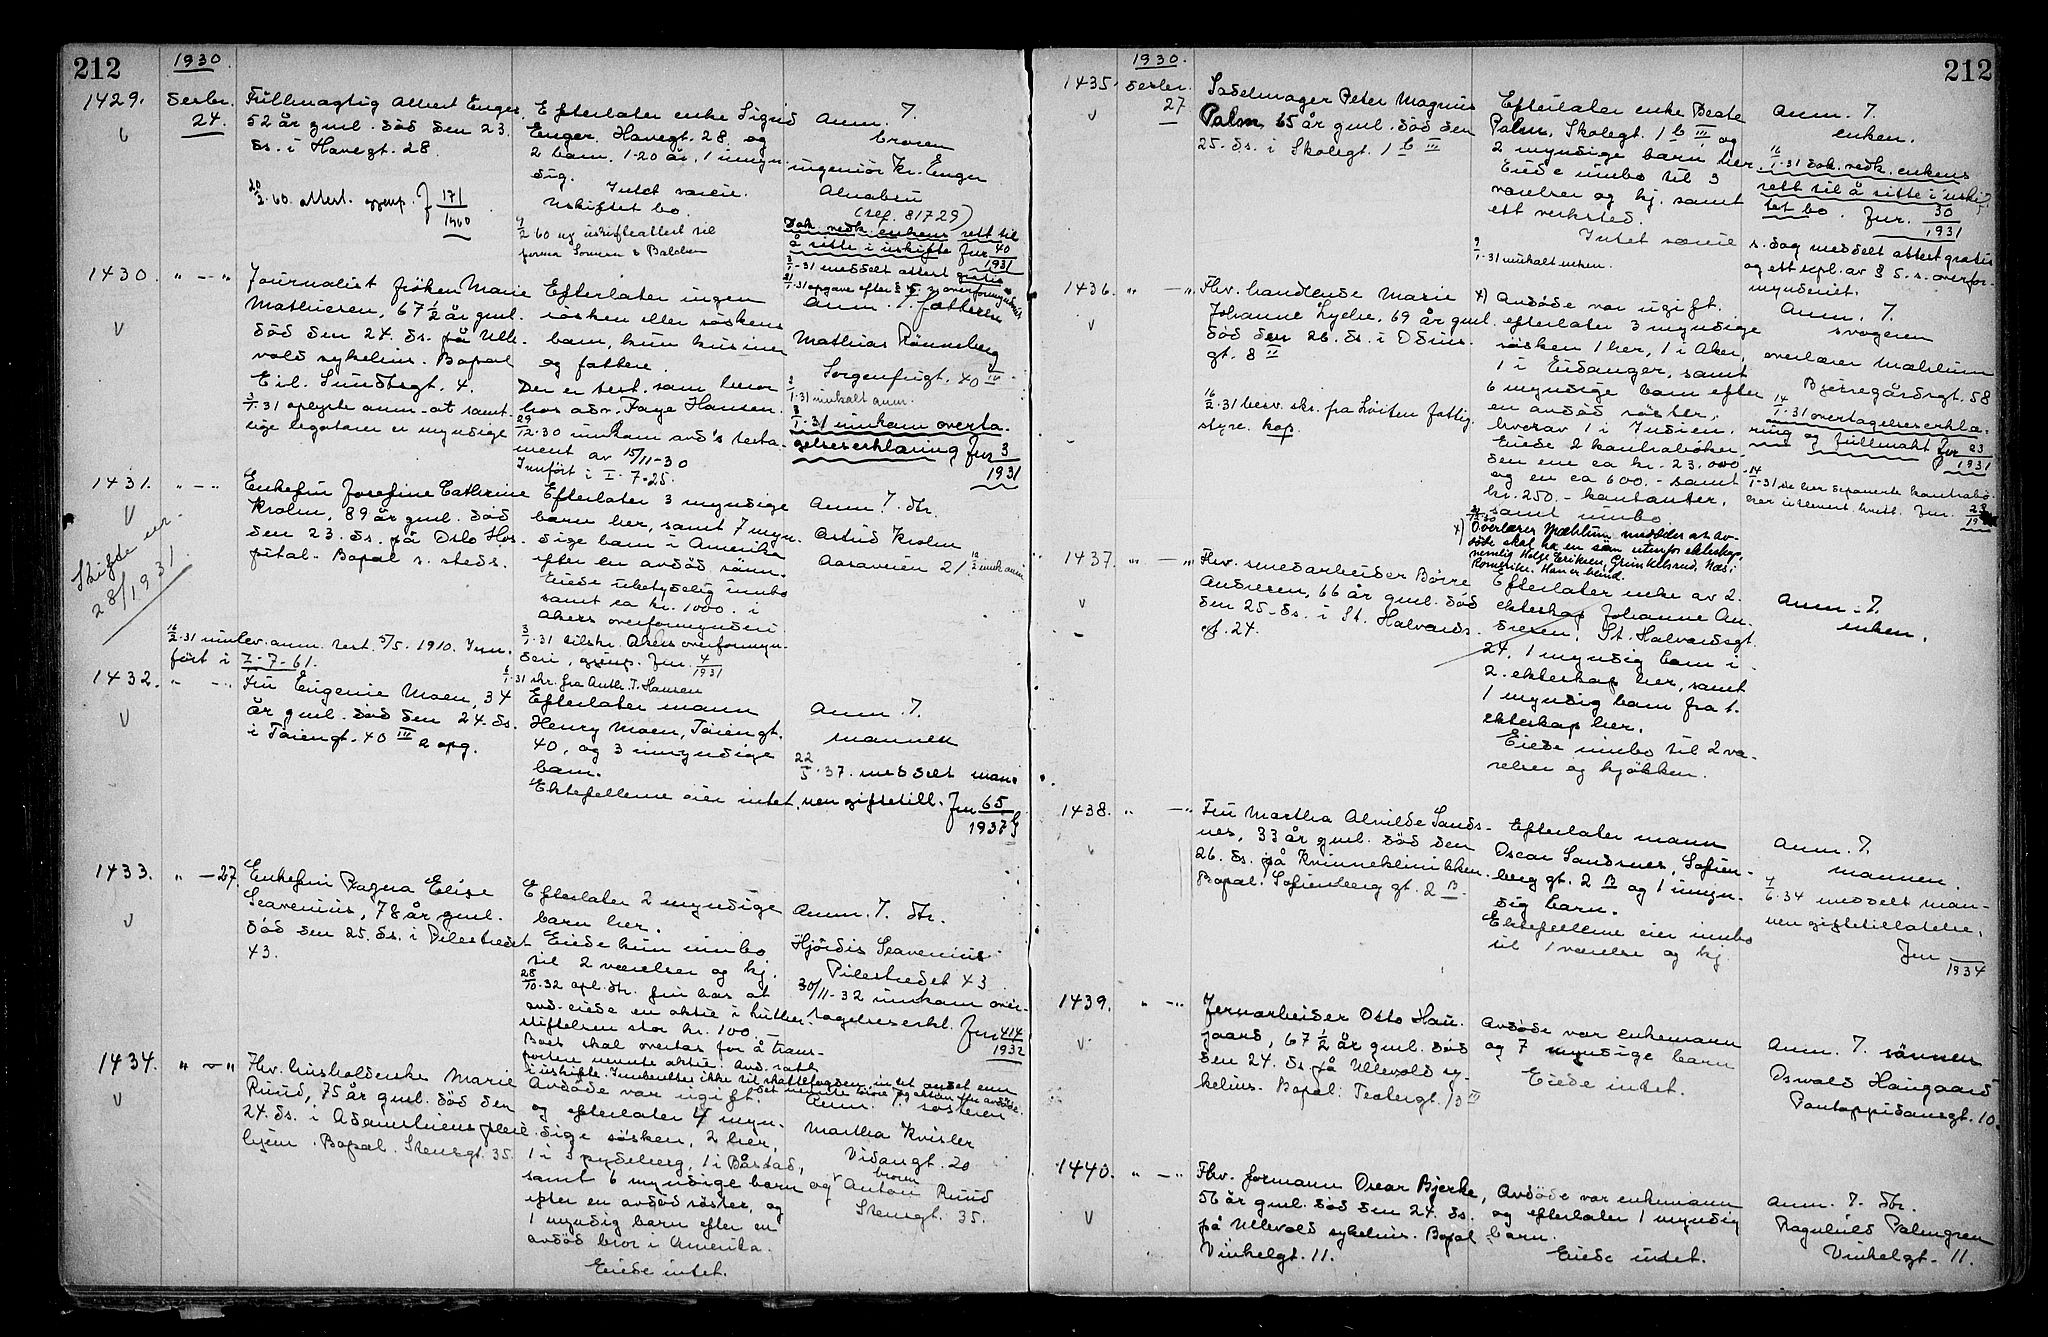 212
1930
1429.
Desbr.
24.
Fullmægtig Albert Enger
52 år gml. död den 23.
ds. i Havegt. 28.
20/3.60. attest. gjenp. J 171/1960
Efterlater enke Sigrid
Enger, Havegt. 28, og
2 barn, 1-20 år, 1 umyn-
dig.
Intet særeie.
Uskiftet bo.
Anm. 7.
broren
ingeniör Kr. Enger
Alnabru
(tel. 81729)
Dok. vedk. enkens rett til
å sitte i uskifte Jur 40/1931
3/1-31 meddelt attest gratis
1430.
" — "
Journalist fröken Marie
Mathiesen, 67 1/2 år gml.
död den 24. ds. på Ulle-
vold sykehus. Bopæl
Eil. Sundtsgt. 4.
3/1-31 oplyste anm. at samt-
lige legatarer er myndige
Efterlater ingen
sösken eller söskens
barn, kun kusiner
og fettere.
Der er test. som beror
hos adv. Faye Hansen.
29/12-30 innkom avd's testa-
ment av 15/11-30
Innfört i I-7-25.
Anm. 7. fetteren
Mathias Rönneberg
Sorgenfrigt. 40 IV
3/1-31 innkalt anm.
8/1-31 innkom overta-
gelseserklæring Jur 3/1931
1431.
" — "
Skifte nr.
28/1931
Enkefru Josefine Cathrine
Krohn, 89 år gml. död
den 23. ds. på Oslo Hos-
pital. Bopæl s. steds.
16/2-31 innlev. anm. test. 5/5. 1910. Inn-
fört i I-7-61.
Efterlater 3 myndige
barn her, samt 7 myn-
dige barn i Amerika
efter en avdöd sönn.
Eiede ubetydelig innbo
samt ca kr. 1000.- i
Akers overformynderi
3/1-31 tilskr. Akers overformyn-
deri, gjenp. Jur. 4/1931
6/1-31 skr. fra Anth. T. Hansen
Anm. 7. dtr.
Astrid Krohn
Aasaveien 21.
1432.
" — "
Fru Eugenie Moen, 34
år gml. död den 24. ds.
i Töiengt. 40 IV 2 opg.
Efterlater mann
Henry Moen, Töiengt.
40, og 3 umyndige
barn.
Ektefellerne eier intet.
Anm. 7.
mannen
22/5-37. meddelt man-
nen giftetill. Jur 65/1937
1433.
" — 27.
Enkefru Ragna Elise
Scavenius, 78 år gml.
död den 25. ds. i Pilestredet
43.
Efterlater 2 myndige
barn her.
Eiede kun innbo
til 2 værelser og kj.
28/10-32 opl. dtr. fru har at
avd. eiede en aktie i Luther-
stiftelsen stor kr. 100.-
Boet skal overtas for å trans-
portere nevnte aktie. Avd. satt
i uskifte.
Anm. 7. dtr.
Hjördis Scavenius
Pilestredet 43.
30/11-32 innkom over-
tagelseserkl. Jur 414/1932
1434.
" — "
Fhv. husholderske Marie
Ruud, 75 år gml. död den
24. ds. i Adamstuens pleie-
hjem. Bopæl. Stensgt. 35.
Avdöde var ugift
og efterlater 4 myn-
dige sösken, 2 her,
1 i Spydeberg, 1 i Båstad,
samt 6 myndige barn
efter en avdöd söster, og
1 myndig barn efter en
avdöd bror i Amerika.
Eiede intet.
Anm. 7. sösteren
Martha Kvisler
Vidarsgt. 20
og broren Anton Ruud
Stensgt. 35.
1930.
212
1435.
Desbr.
27
Sadelmager Peter Magnus
Palm, 65 år gml. död den
25. ds. i Skolegt. 1 b III
Efterlater enke Beate
Palm, Skolegt. 1 b III og
2 myndige barn her
Eiede innbo til 3
værelser og kj. samt
ett verksted.
Intet særeie
9/1-31 innkalt enken.
Anm. 7.
enken.
16/1-31 dok. vedk. enkens
rett til å sitte i uskif-
tet bo. Jur. 30/1931
s. dag meddelt attest gratis
og ett expl. av § 5. s. overfor-
mynderiet.
1436.
" — "
Fhv. handlende Marie
Johanne Lyche, 69 år gml.
död den 26. ds. i Odins-
gt. 8 II
16/2-31 besv. skr. fra Löiten fattig-
styre. kop.
x) Avdöde var ugift.
efterlater 3 myndige
sösken 1 her, 1 i Aker,
1 i Eidanger, samt
6 myndige barn efter
en avdöd söster,
hvorav 1 i Indien.
Eiede 2 bankböker,
den ene ca kr. 23.000
og en ca 600.- samt
kr. 250.- kontanter,
samt innbo
x) Overlærer Mæhlum meddeler at av-
döde skal ha en sönn utenfor ekteskap,
nemlig Helge Eriksen, Grinkelsrud, Næs i
Romerike. Han er blind.
Anm. 7.
svogeren
overlærer Mæhlum
Bjerregårdsgt. 58
14/1-31 overtagelseserklæ-
ring og fullmakt Jur 23/1931
1437.
" — "
Fhv. smedarbeider Börre
Andresen, 66 år gml. död
den 25. ds. i St. Halvards-
gt. 24.
Efterlater enke av 2.
ekteskap Johanne An-
dresen, St. Halvardsgt.
24, 1 myndig barn i
2. ekteskap her, samt
1 myndig barn fra 1.
ekteskap her.
Eiede innbo til 2 væ-
relser og kjökken.
Anm. 7.
enken.
1438.
" — "
Fru Martha Alvilde Sands-
nes, 33 år gml. död den
26. ds. på Kvinneklinikken.
Bopæl: Sofienberg gt. 2 B.
Efterlater mann
Oscar Sandsnes, Sofien-
berg gt. 2 B og 1 umyn-
dig barn.
Ektefellerne eier innbo
til 1 værelse og kj.
Anm. 7.
mannen.
7/6-34 meddelt man-
nen giftetillatelse.
Jur /1934
1439.
" — "
Jernarbeider Otto Hau-
gaard, 67 1/2 år gml. död
den 24. ds. på Ullevold sy-
kehus. Bopæl: Teatergt. 13 III
Avdöde var enkemann
og 7 myndige barn
Eiede intet.
Anm. 7. sönnen
Osvald Haugaard
Pontoppidansgt. 10.
1440.
" — "
Fhv. formann Oscar Bjerke,
56 år gml. död den 24. ds.
på Ullevold sykehus. Bopæl
Vinkelgt. 11.
Avdöde var enkemann
og efterlater 1 myndig
barn.
Eiede intet.
Anm. 7. dtr.
Ragnhild Palmgren
Vinkelgt. 11.